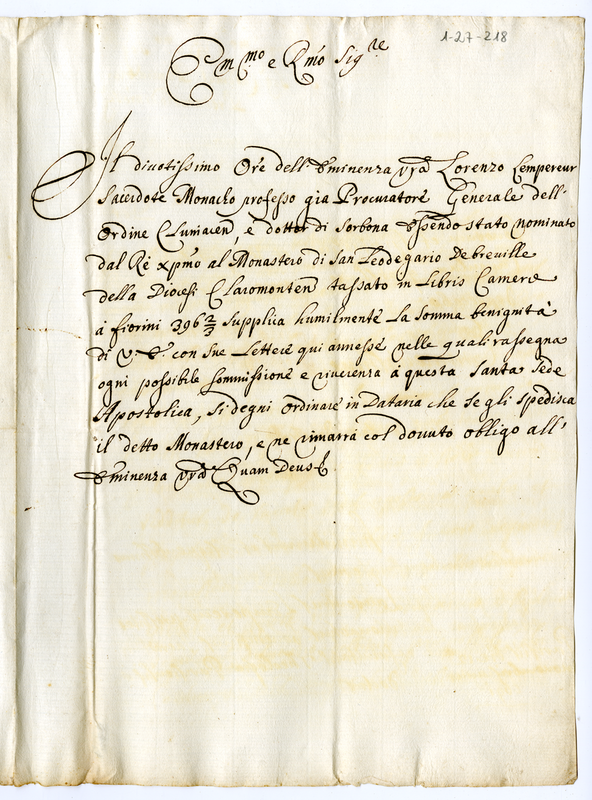 1-27-218
Em.mo e R.mo Sig.re
Il divotissimo Ore dell'Eminenza vra Lorenzo Lempereur
Sacerdote Monacho professo gia Procuratore Generale dell'
Ordine Cluniacen, e dottor di Sorbona essendo stato nominato
dal Rè xpmo al Monastero di San Leodegario De breville
della Diocesi Claromonten tassato in Libris Camere
à fiorini 396 2/3 supplica humilmente La somma benignità
di V. E. con sue Lettere qui annesse nelle quali rassegna
ogni possibile sommissione e riverenza à questa Santa Sede
Apostolica, si degni ordinare in Dataria che se gli spedisca
il detto Monastero, e ne rimarrà col dovuto obligo all'
Eminenza vra Quam Deus